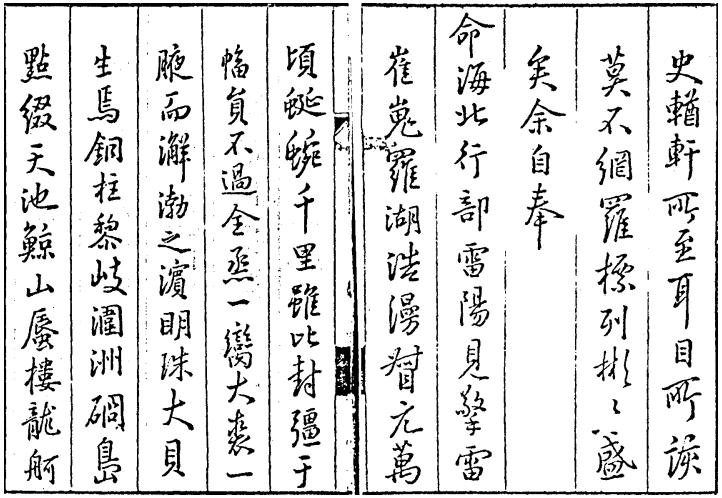 史輶軒所至耳目所
莫不網羅標列彬〻盛
矣余自奉
命海北行部雷陽見擎雷
崔嵬羅湖浩漫督亢萬
頃蜒蜿千里雖比封疆于
幅員不過全烝一臠大裘一
腋而澥渤之濱明珠大貝
生焉銅柱黎岐潿洲碙島
點綴天池鯨山蜃樓龍舸